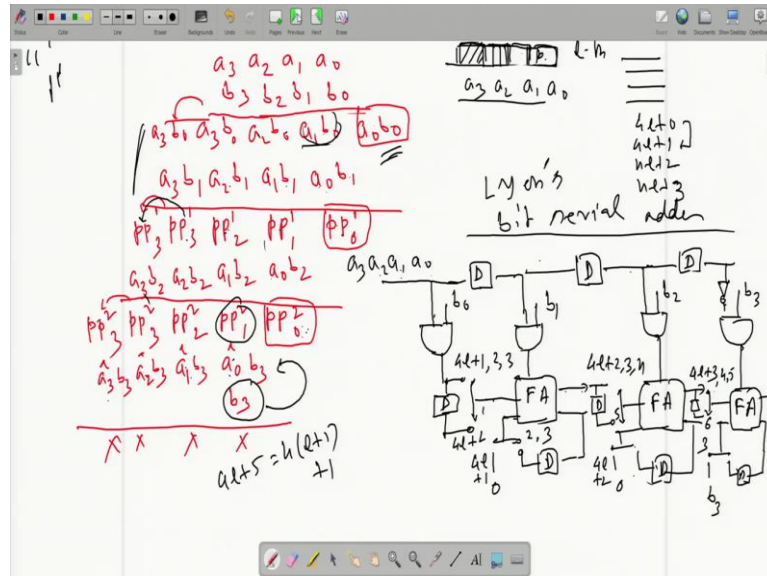 Status Color Line Eraser Backgrounds Undo Redo Pages Previous Next Erase Board Web Documents Show Desktop
a3 a2 a1 a0
b3 b2 b1 b0
a3b0 a3b0 a2b0 a1b0 a0b0
a3b1 a2b1 a1b1 a0b1
pp3^1 pp3^1 pp2^1 pp1^1 pp0^1
a3b2 a2b2 a1b2 a0b2
pp3^2 pp3^2 pp2^2 pp1^2 pp0^2
â3b3 â2b3 â1b3 â0b3
b3
X X X X
4l+5=4(l+1)
+1
a3 a2 a1 a0
4l+0
4l+1
4l+2
4l+3
Lyon's
bit serial adder
a3a2a1a0 D D D
b0 b1 b2 b3
4l+1,2,3 4l+2,3,4 4l+3,4,5
D FA D FA FA
4l+1 0 4l+2 0 b3
D D D